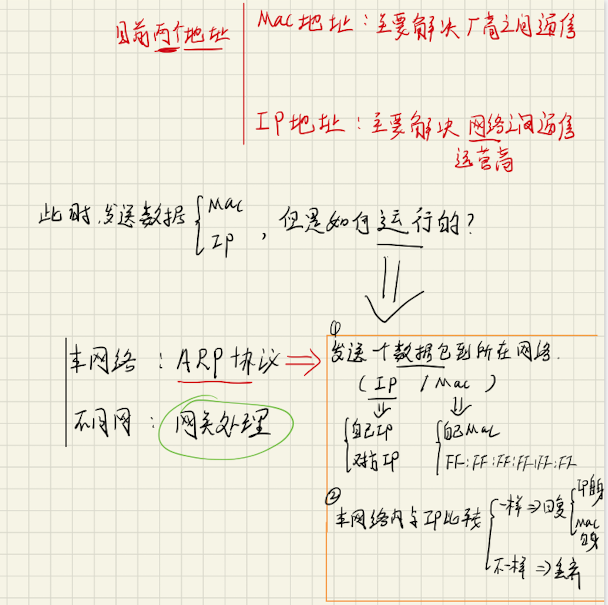 目前两个地址
Mac地址：主要解决厂商之间通信
IP地址：主要解决网络之间通信
运营商
此时，发送数据{Mac IP，但是如何运行的？
①
本网络：ARP协议⇒发送一个数据包到所在网络.
(IP / Mac)
不同网：网关处理
自己IP 自己Mac
对方IP FF:FF:FF:FF:FF:FF
②
本网络内与IP比较
一样⇒回复
IP自身
Mac自身
不一样⇒丢弃